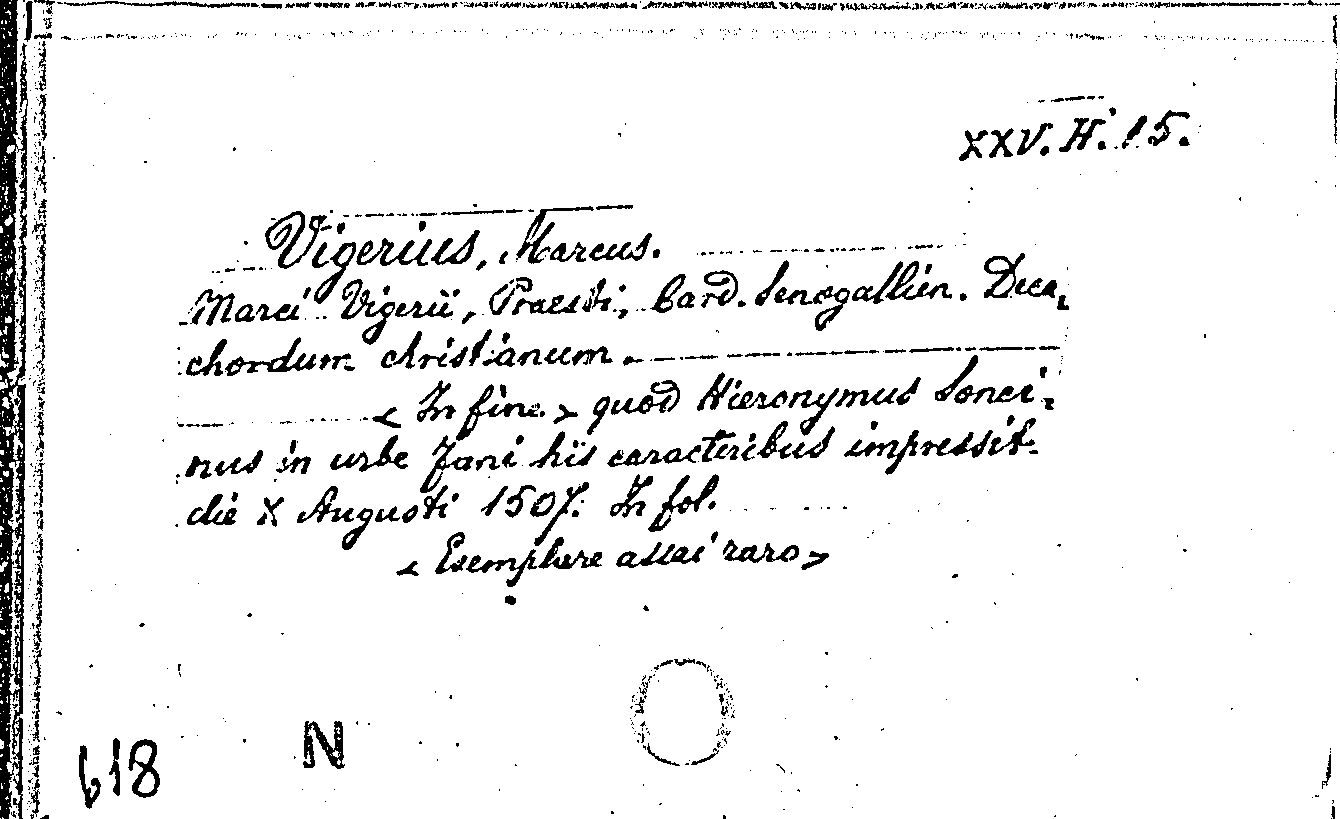 XXV. H. 15.
Vigerius, Marcus.
Marci Vigerii, Praesti, Card. Senogallien. Deca-
chordum christianum.
< In fine > quod Hieronymus Sonci-
nus in urbe Fani hiis caracteribus impressit
die X Augusti 1507. In fol.
< Esemplare assai raro >
N
618